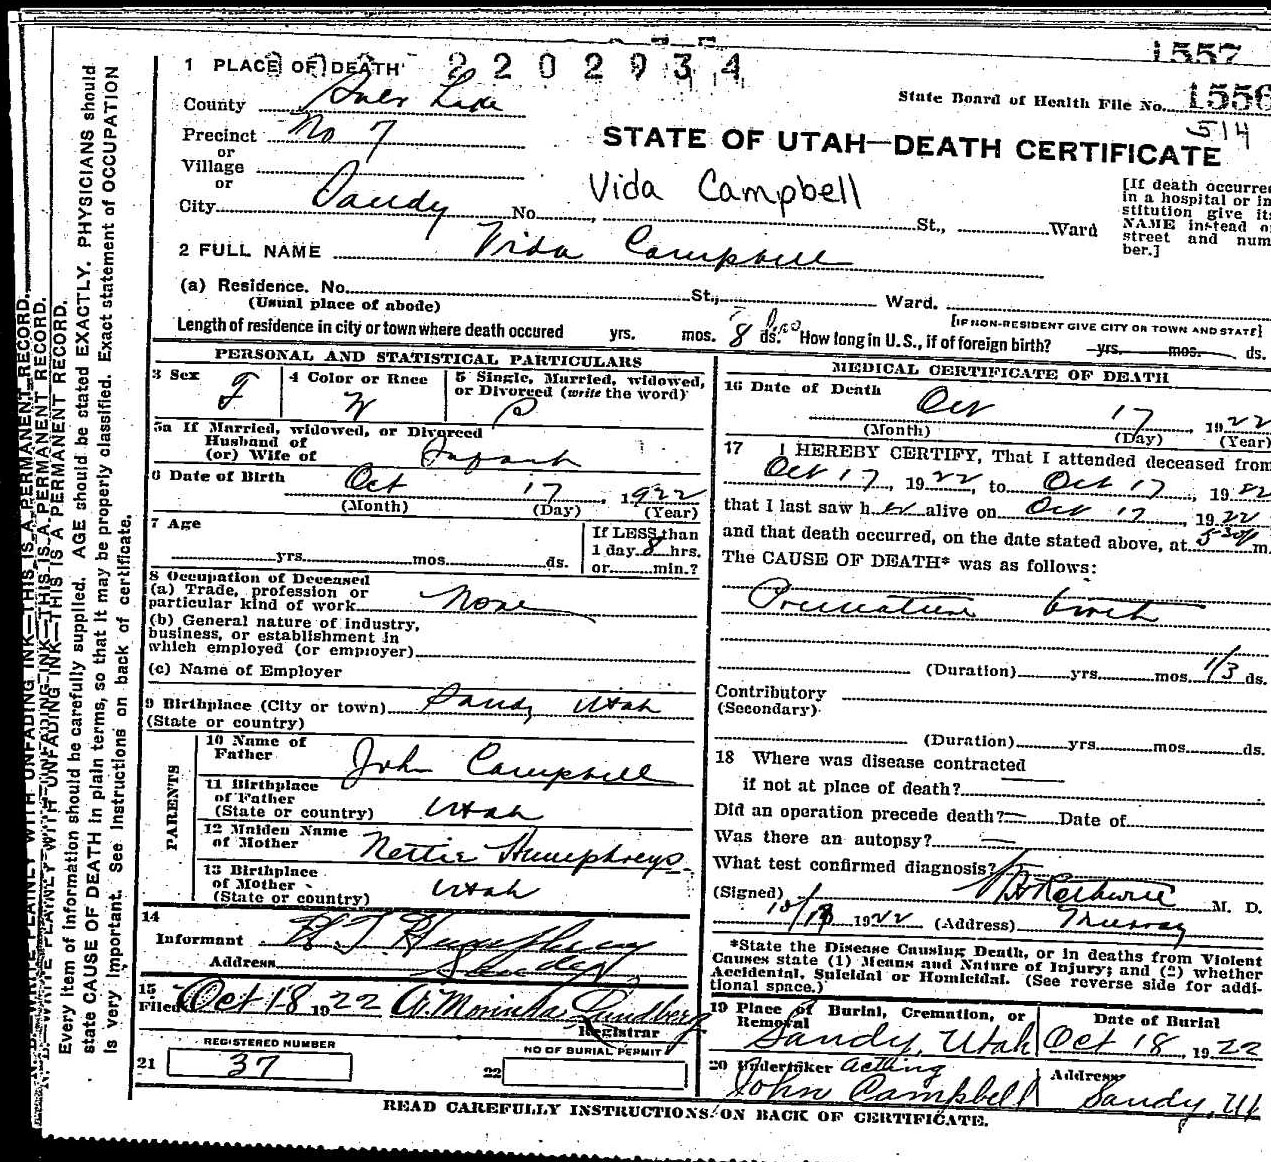 1557
1 PLACE OF DEATH 2202934
State Board of Health File No. 1556
514
County Salt Lake
Precinct No 7
or
Village
or
City Sandy No. St., Ward
STATE OF UTAH—DEATH CERTIFICATE
Vida Campbell
[If death occurred
in a hospital or in
stitution give its
NAME instead of
street and num
ber.]
2 FULL NAME Vida Campbell
(a) Residence. No. St., Ward.
(Usual place of abode)
[IF NON-RESIDENT GIVE CITY OR TOWN AND STATE]
Length of residence in city or town where death occured yrs. mos. 8 hrs ds. How long in U.S., if of foreign birth? yrs. mos. ds.
PERSONAL AND STATISTICAL PARTICULARS
3 Sex F
4 Color or Race W
5 Single, Married, widowed,
or Divorced (write the word)
5a If Married, widowed, or Divorced
Husband of
(or) Wife of Infant
6 Date of Birth Oct 17, 1922
(Month) (Day) (Year)
7 Age
yrs. mos. ds.
If LESS than
1 day 8 hrs.
or min.?
8 Occupation of Deceased
(a) Trade, profession or
particular kind of work None
(b) General nature of industry,
business, or establishment in
which employed (or employer)
(c) Name of Employer
9 Birthplace (City or town) Sandy Utah
(State or country)
PARENTS
10 Name of
Father John Campbell
11 Birthplace
of Father
(State or country) Utah
12 Maiden Name
of Mother Nettie Humphreys
13 Birthplace
of Mother
(State or country) Utah
14
Informant Humphrey
Address Sandy
15
Filed Oct 18 1922 A. Morinha Lundberg
Registrar
REGISTERED NUMBER
21 37
NO OF BURIAL PERMIT
22
MEDICAL CERTIFICATE OF DEATH
16 Date of Death Oct 17, 1922
(Month) (Day) (Year)
17 I HEREBY CERTIFY, That I attended deceased from
Oct 17, 1922, to Oct 17, 1922
that I last saw her alive on Oct 17, 1922
and that death occurred, on the date stated above, at 5 30 P m.
The CAUSE OF DEATH* was as follows:
Premature birth
(Duration) yrs. mos. 1/3 ds.
Contributory
(Secondary)
(Duration) yrs. mos. ds.
18 Where was disease contracted
if not at place of death?
Did an operation precede death? Date of
Was there an autopsy?
What test confirmed diagnosis?
(Signed) M. D.
10/18 1922 (Address) Murray
*State the Disease Causing Death, or in deaths from Violent
Causes state (1) Means and Nature of Injury; and (2) whether
Accidental, Suicidal or Homicidal. (See reverse side for addi-
tional space.)
19 Place of Burial, Cremation, or
Removal
Sandy, Utah
Date of Burial
Oct 18, 1922
20 Undertaker Acting
John Campbell
Address
Sandy, Ut
READ CAREFULLY INSTRUCTIONS ON BACK OF CERTIFICATE.
N. B.—WRITE PLAINLY WITH UNFADING INK—THIS IS A PERMANENT RECORD.
Every item of information should be carefully supplied. AGE should be stated EXACTLY. PHYSICIANS should
state CAUSE OF DEATH in plain terms, so that it may be properly classified. Exact statement of OCCUPATION
is very important. See Instructions on back of certificate.